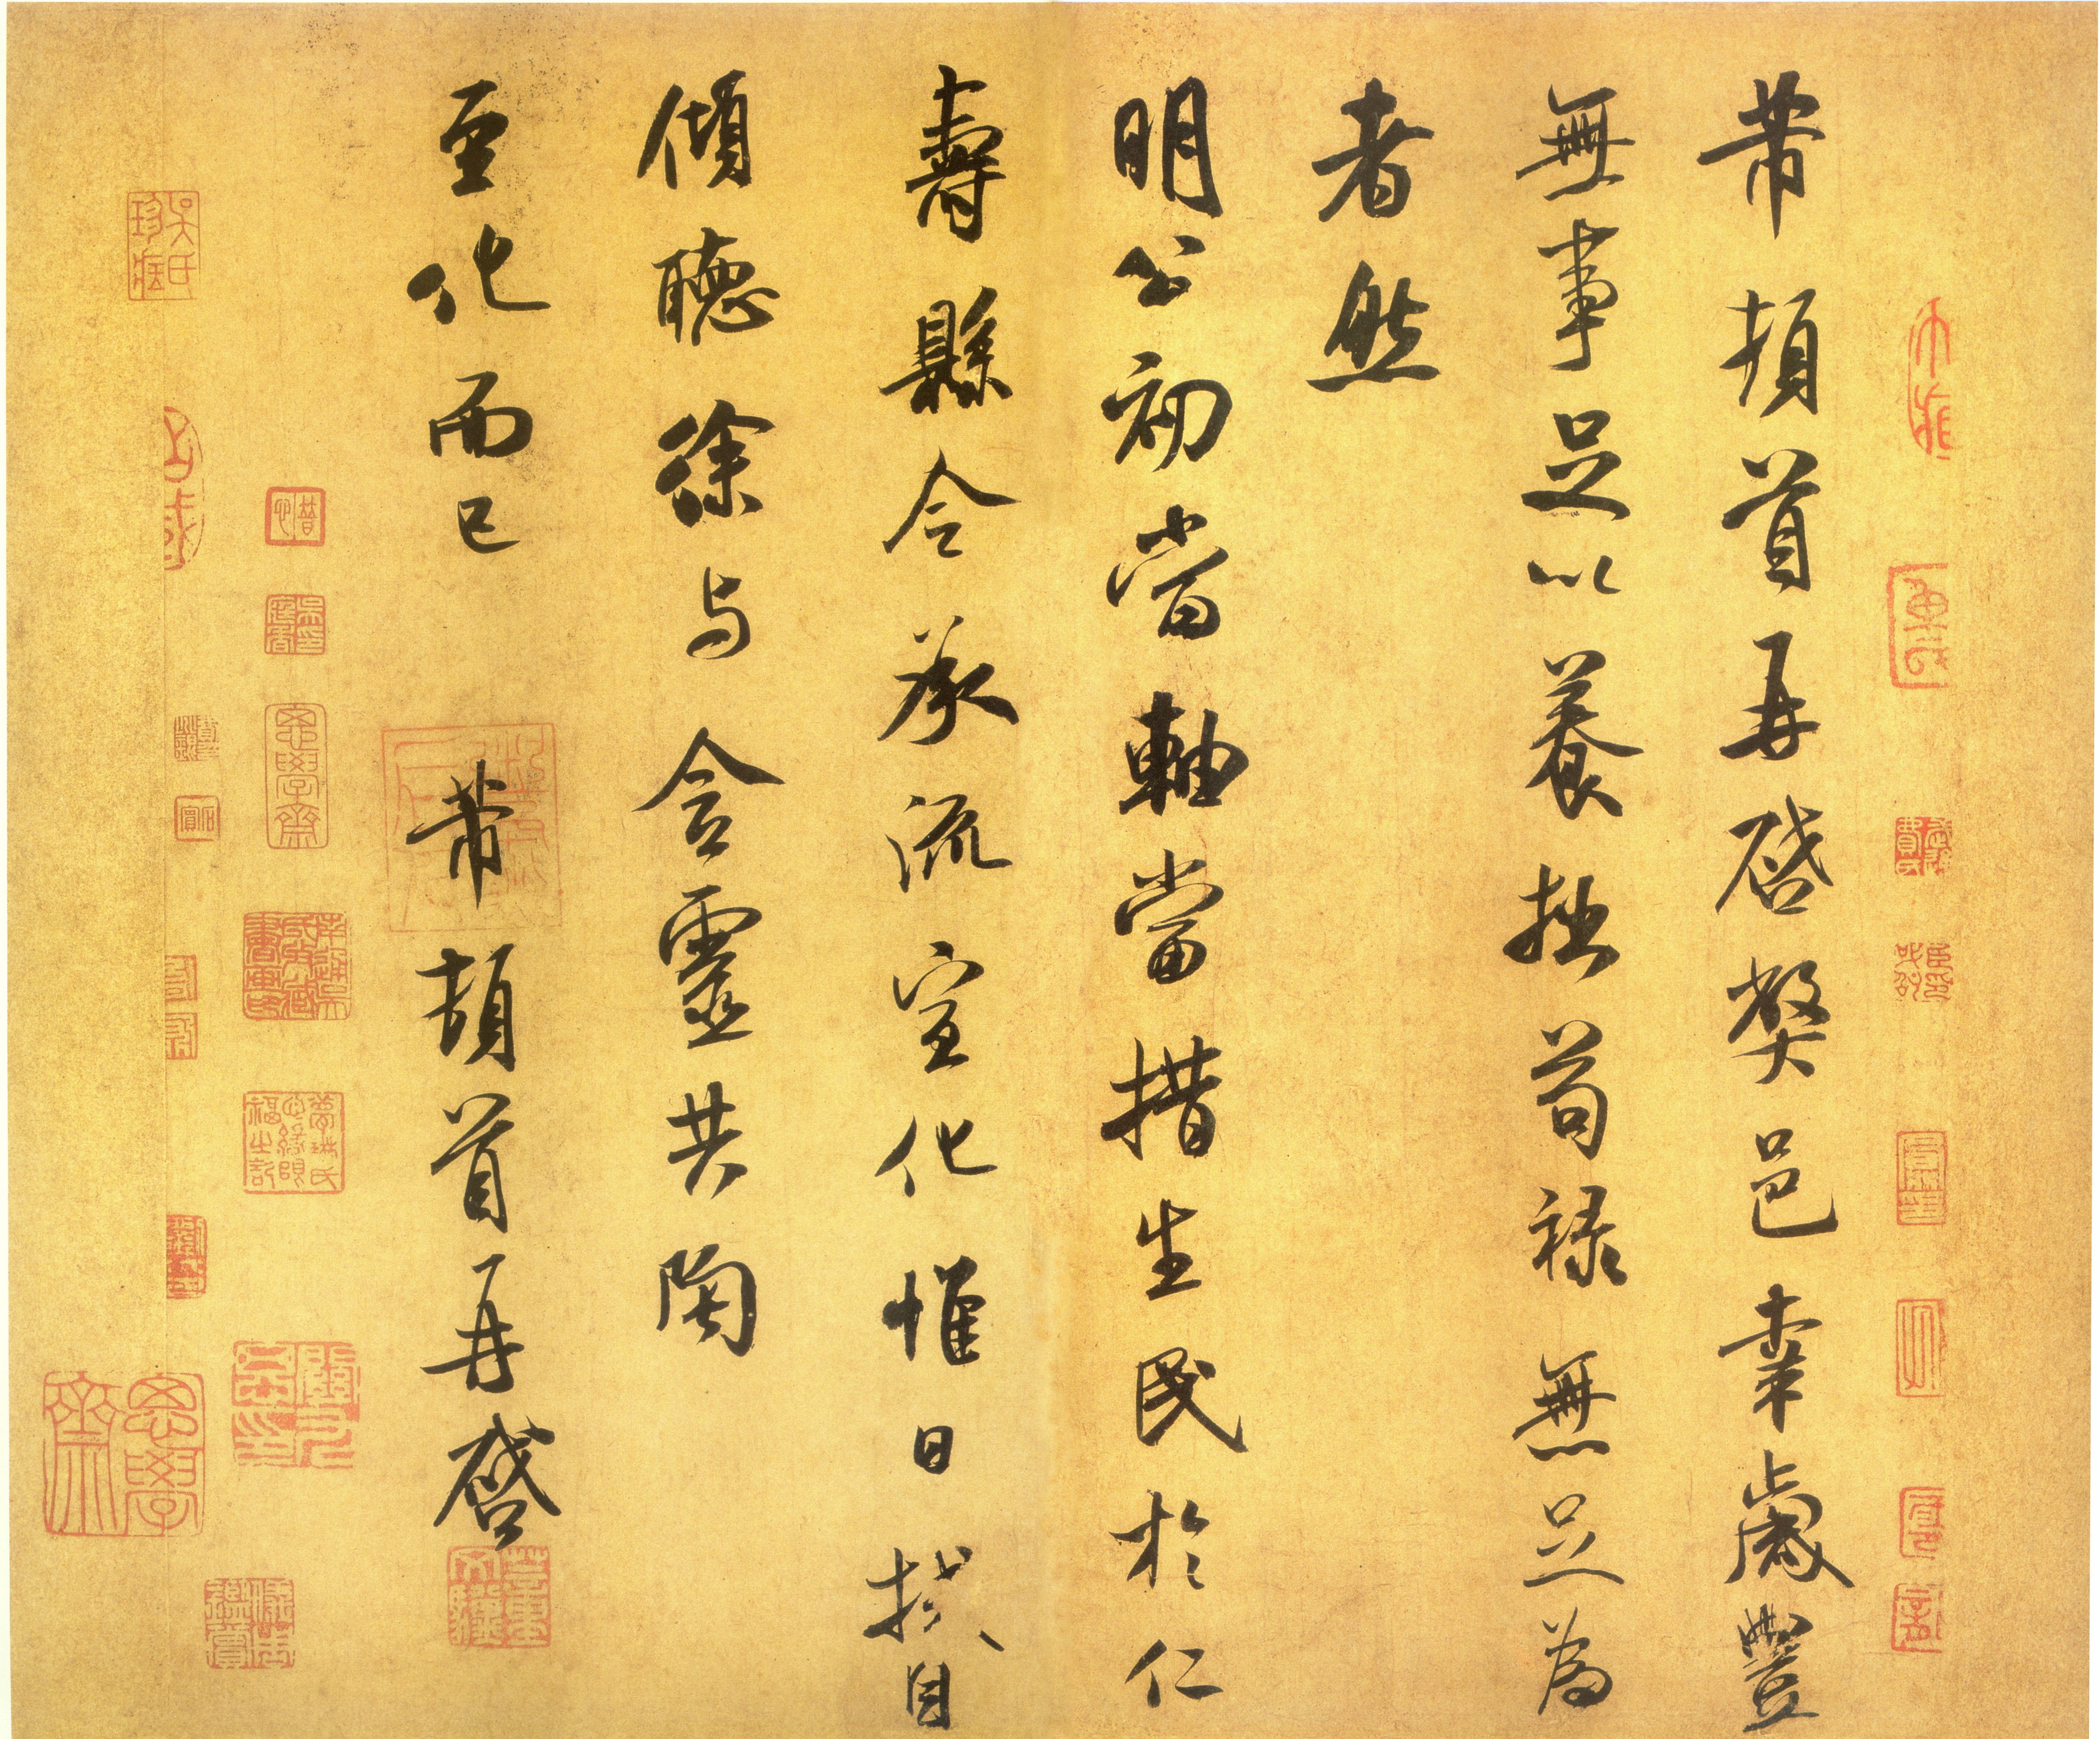 芾頓首再啓弊邑幸歲豐
無事足以養拙苟祿無足為
者然
明公初當軸當措生民於仁
壽縣令承流宣化惟日拭目
傾聽徐與含靈共陶
至化而已 芾頓首再啓
吳氏珍藏
思學齋
思學齋